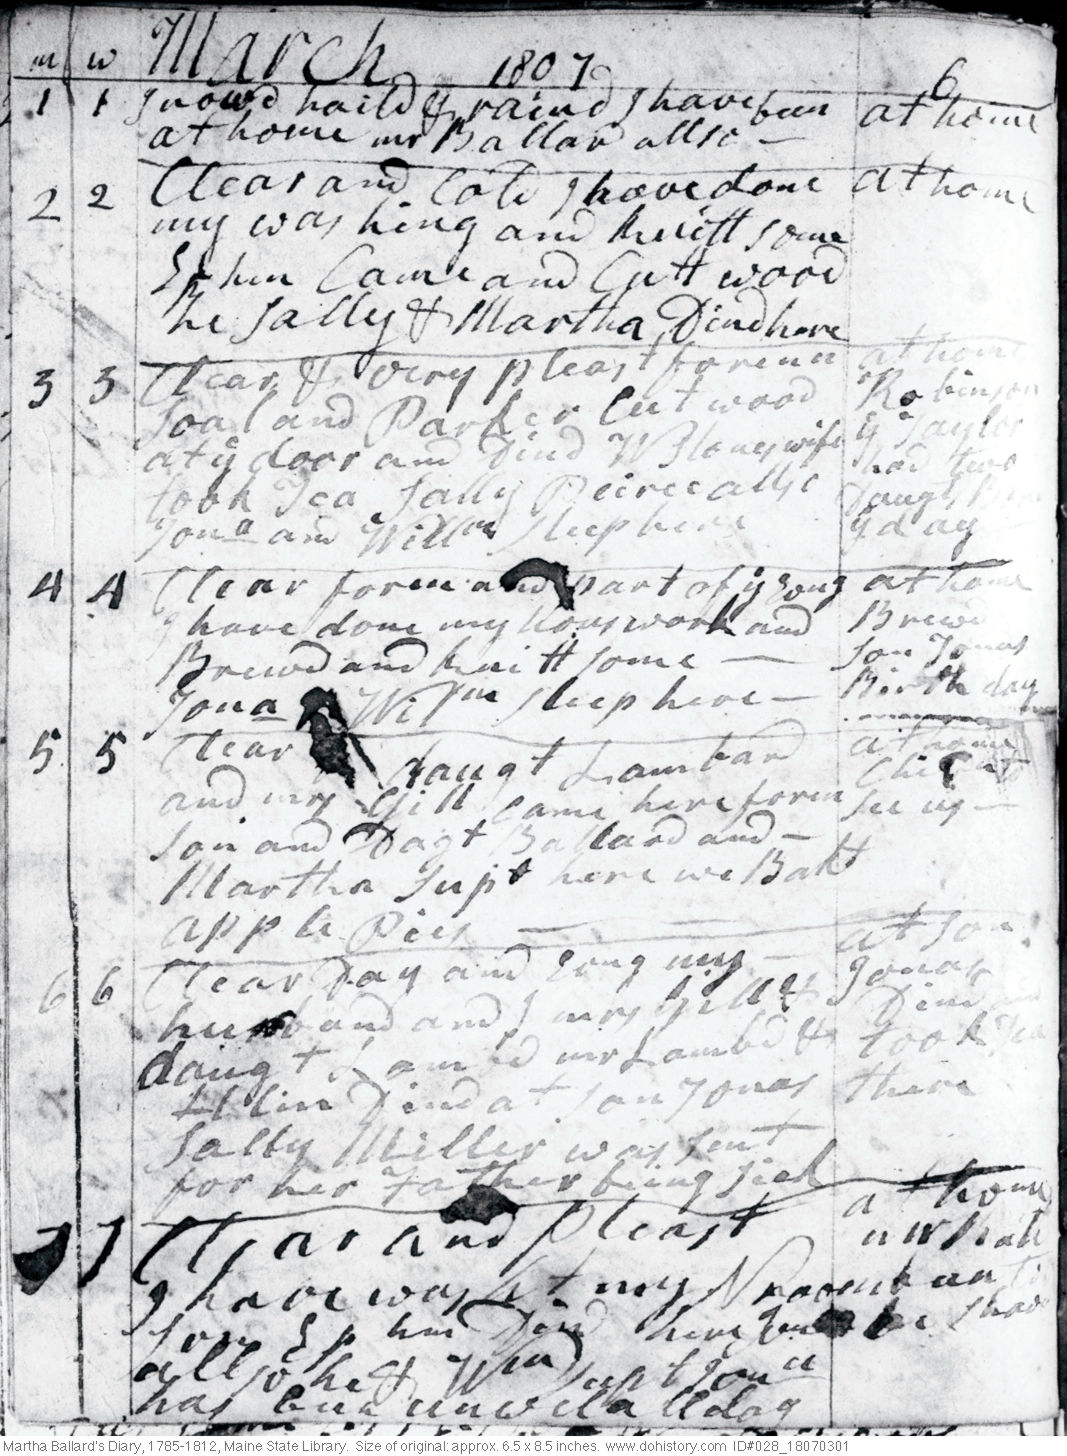 m w March 1807 6
1 1 Snowd haild & raind I have been
at home mr Ballard allso –
at home
2 2 Clear and Cold I have done
my washing and knitt some
Ephm Came and Cutt wood
he Sally & Martha Dind here
at home
3 3 Clear & very pleast foren
Soal and Parker Cut wood
at ÿ door and Dind W Stones wife
took Tea Sally Peirce allso
Jona and Willm sleep here
at home
Robinson
ÿ Taylor
had two
Daughts
ÿ day
4 4 Clear foren and part of ÿ Evng
I have done my houswork and
Brewd and knitt some –
Jona Wilm sleep here –
at home
Brewd
son Jonas
Birth day
5 5 Clear daugt Lambard
and mrs Gill Came here foren
Son and Dagt Ballard and –
Martha Supt here we Bakt
apple Pies –
at home
see us –
6 6 Clear Day and Evng my –
husband and I mrs Gill &
daugt Lambd mr Lambd &
Dind at son Jonas
Sally Miller was sent
for her Father being sick
at son
Jonas
Dind
took Tea
there
7 7 Clear and pleast
I have washt my
son Ephm Dind here
allso he & Wm supt Jona
has been unwell all day
at home